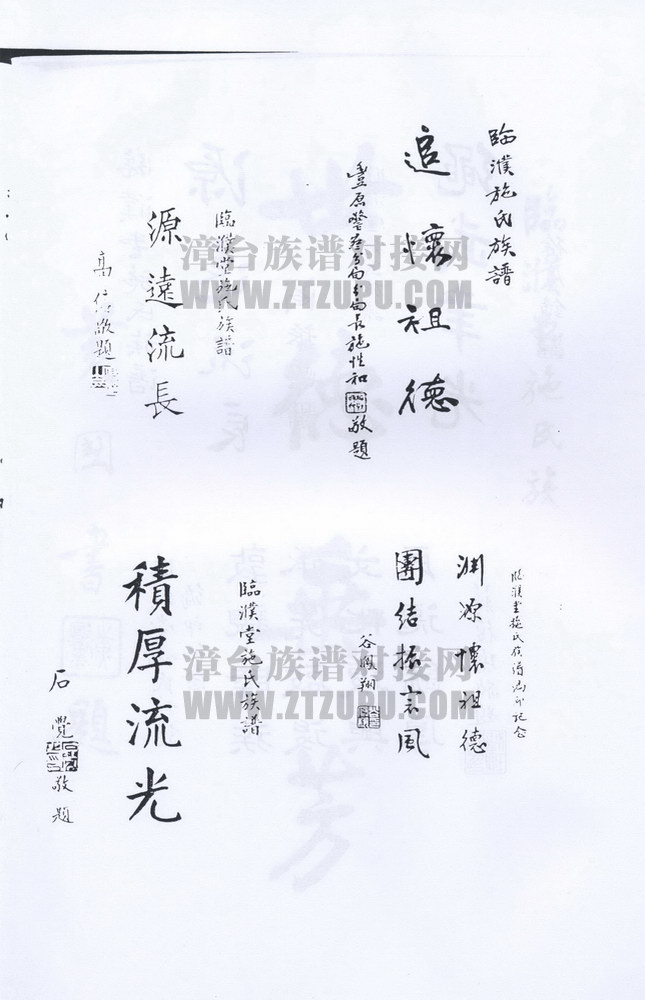 臨濮施氏族譜
追懷祖德
豐原警察分局分局長施性和敬題
臨濮堂施氏族譜
源遠流長
高信敬題
臨濮堂施氏族譜編印紀念
淵源懷祖德
團結振宗風
谷鳳翔
臨濮堂施氏族譜
積厚流光
石覺敬題
漳台族谱对接网
WWW.ZTZUPU.COM
漳台族谱对接网
WWW.ZTZUPU.COM